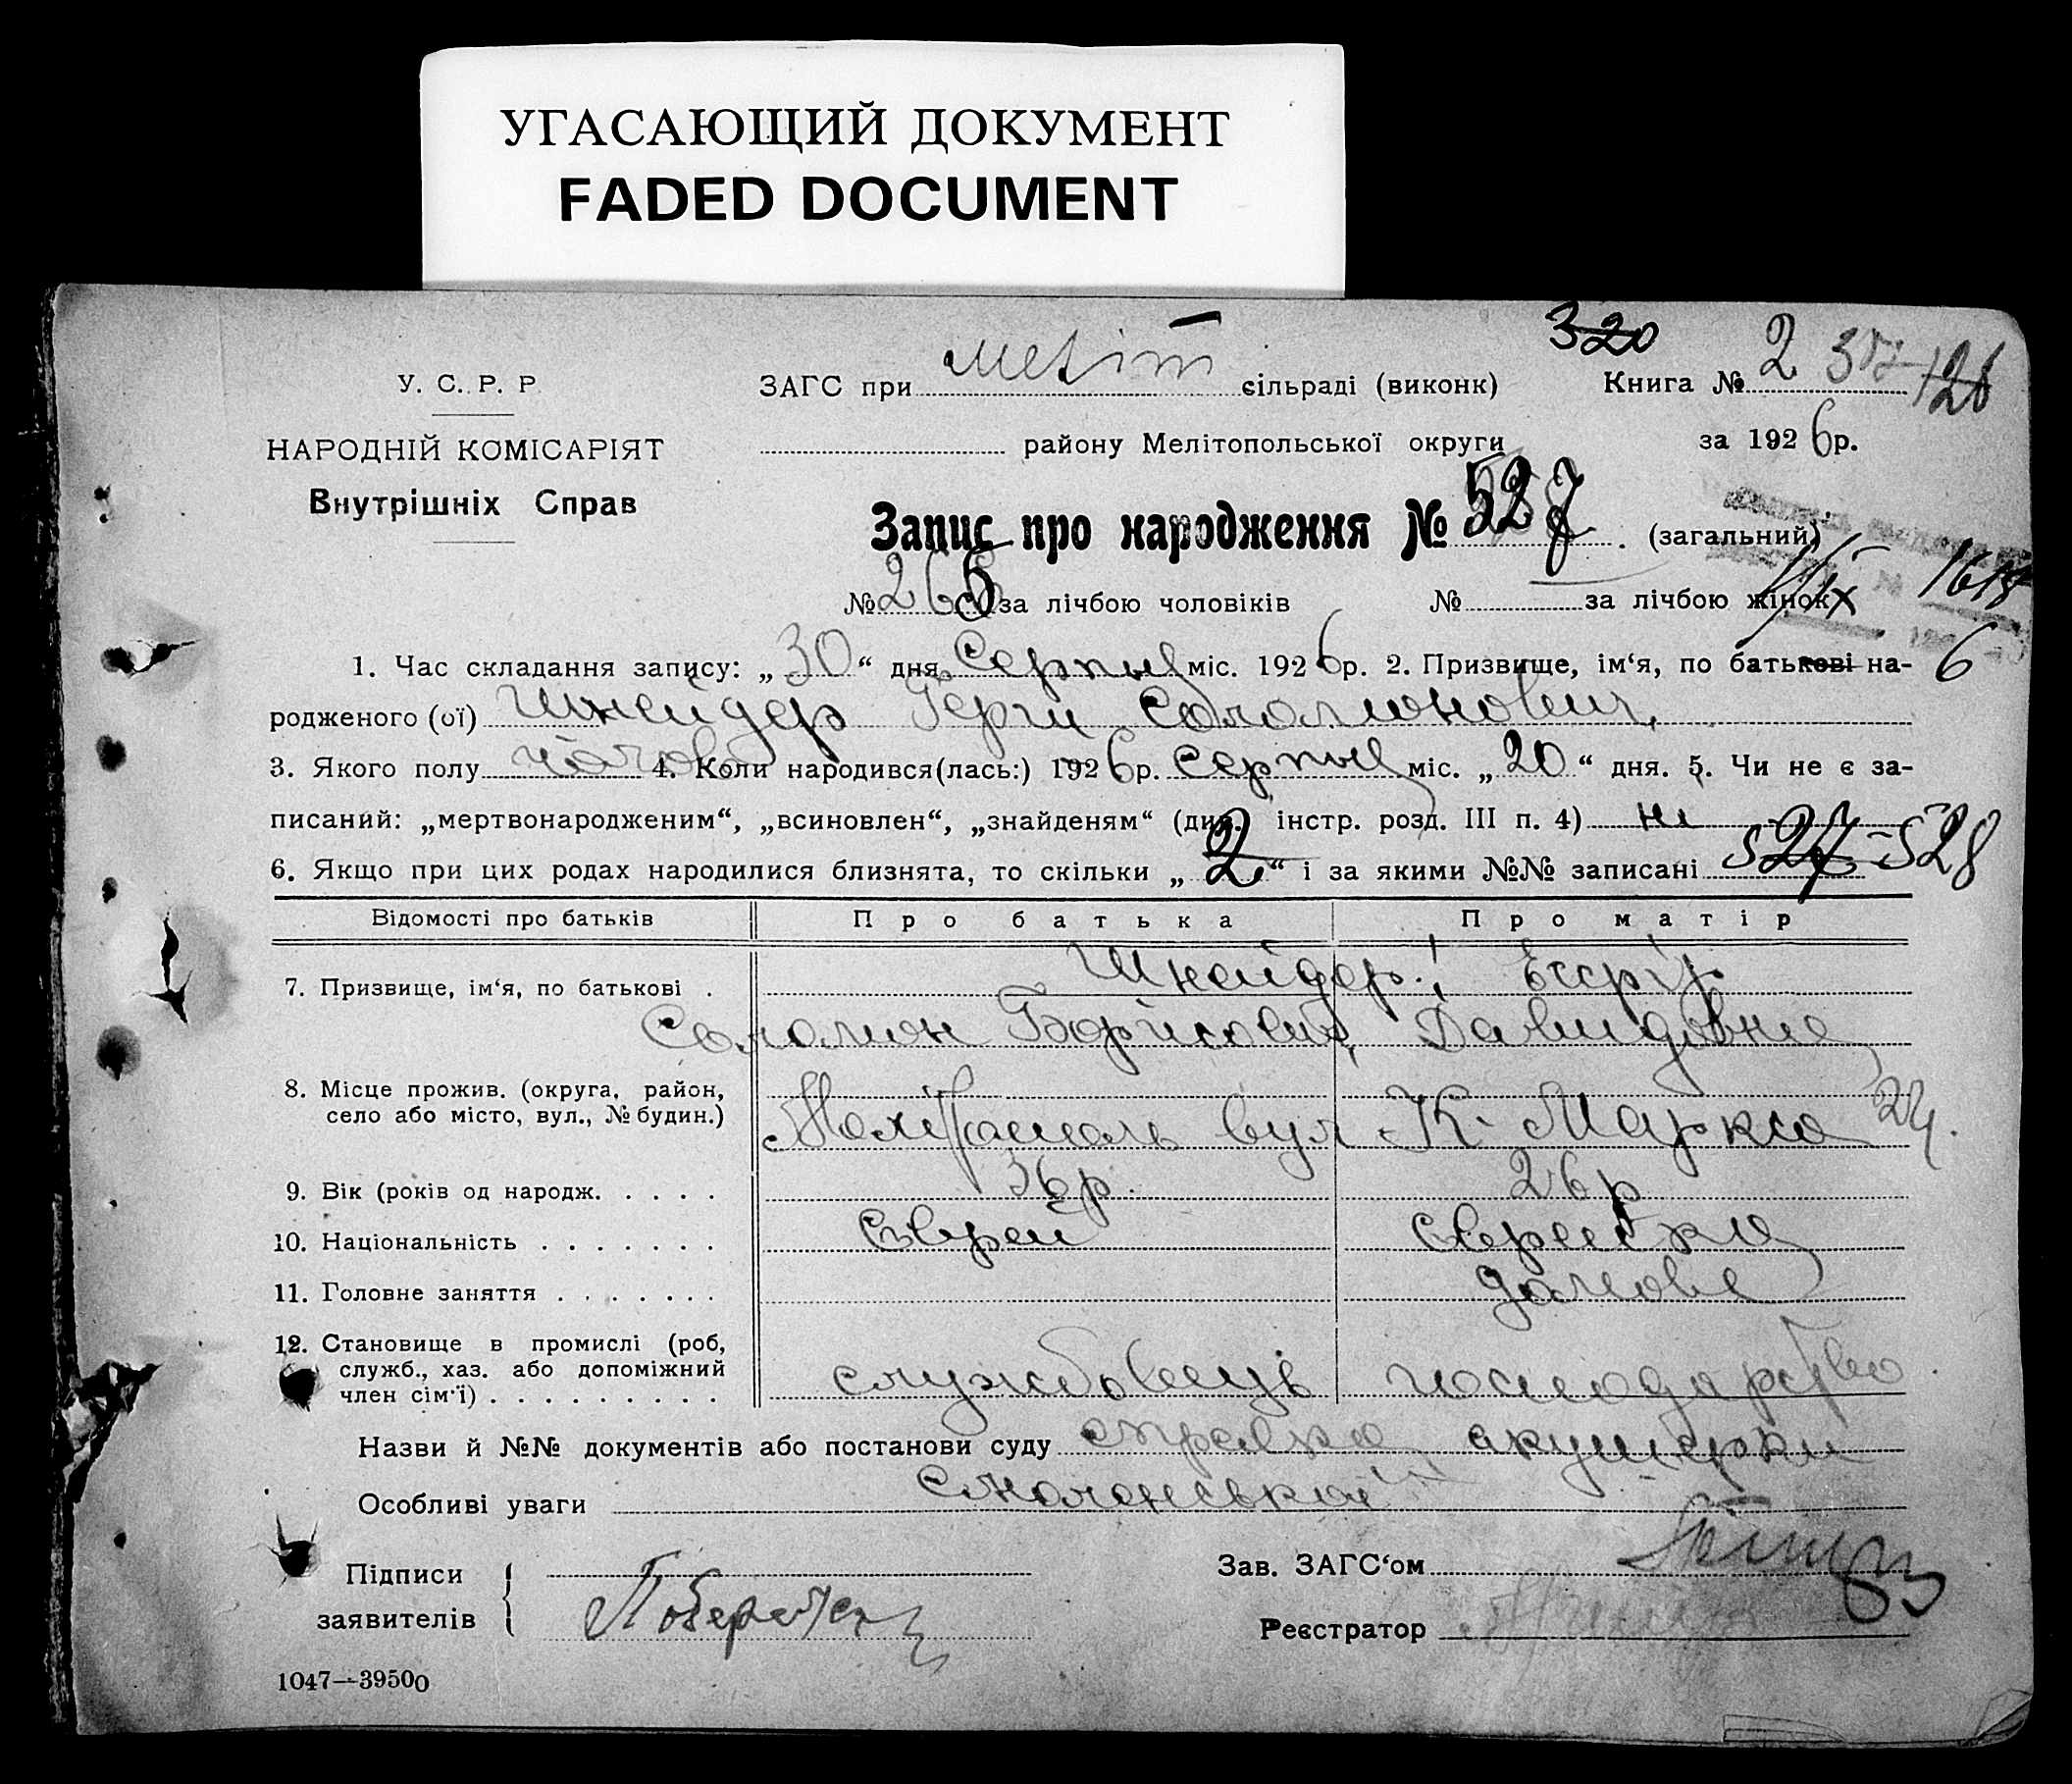 УГАСАЮЩИЙ ДОКУМЕНТ
FADED DOCUMENT
320
У. С. Р. Р.
ЗАГС при Меліт сільраді (виконк)
Книга № 2
126
НАРОДНІЙ КОМІСАРІЯТ
району Мелітопольської округи
за 1926 р.
Внутрішніх Справ
Запис про народження № 527 (загальний)
№ 265 за лічбою чоловіків № за лічбою жінок
1. Час складання запису: „30“ дня Серпня міс. 1926 р. 2. Призвище, ім‘я, по батькові на-
родженого (ої) Шнейдер Соломонович
3. Якого полу чолов 4. Коли народився(лась:) 1926 р. Серпня міс. „20“ дня. 5. Чи не є за-
писаний: „мертвонародженим“, „всиновлен“, „знайденям“ (див. інстр. розд. III п. 4) ні
6. Якщо при цих родах народилися близнята, то скільки „2“ і за якими №№ записані 527-528
Відомості про батьків Про батька Про матір
7. Призвище, ім‘я, по батькові . Шнейдер Єсфір
Соломон Борисович Давидовна
8. Місце прожив. (округа, район,
село або місто, вул., № будин.) Мелітополь вул К. Маркса 24.
9. Вік (років од народж. . . . . 36 р. 26 р
10. Національність . . . . . . . Єврей Єврейка
11. Головне заняття . . . . . . . домове
12. Становище в промислі (роб,
служб., хаз. або допоміжний
член сім‘ї) . . . . . . . . . службовець господарство
Назви й №№ документів або постанови суду справка акушерки
Особливі уваги Смоленської
Підписи
заявителів
Зав. ЗАГС‘ом
Реєстратор
1047—39500